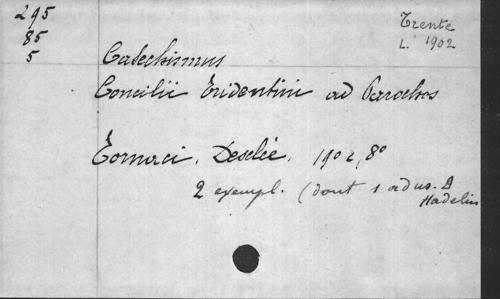 295
85
5
Trente
L. 1902
Catechismus
Concilii Tridentini ad Parochos
Tornaci, Desclée, 1902, 8°
2 exempl. (dont 1 ad us. D
Hadelin